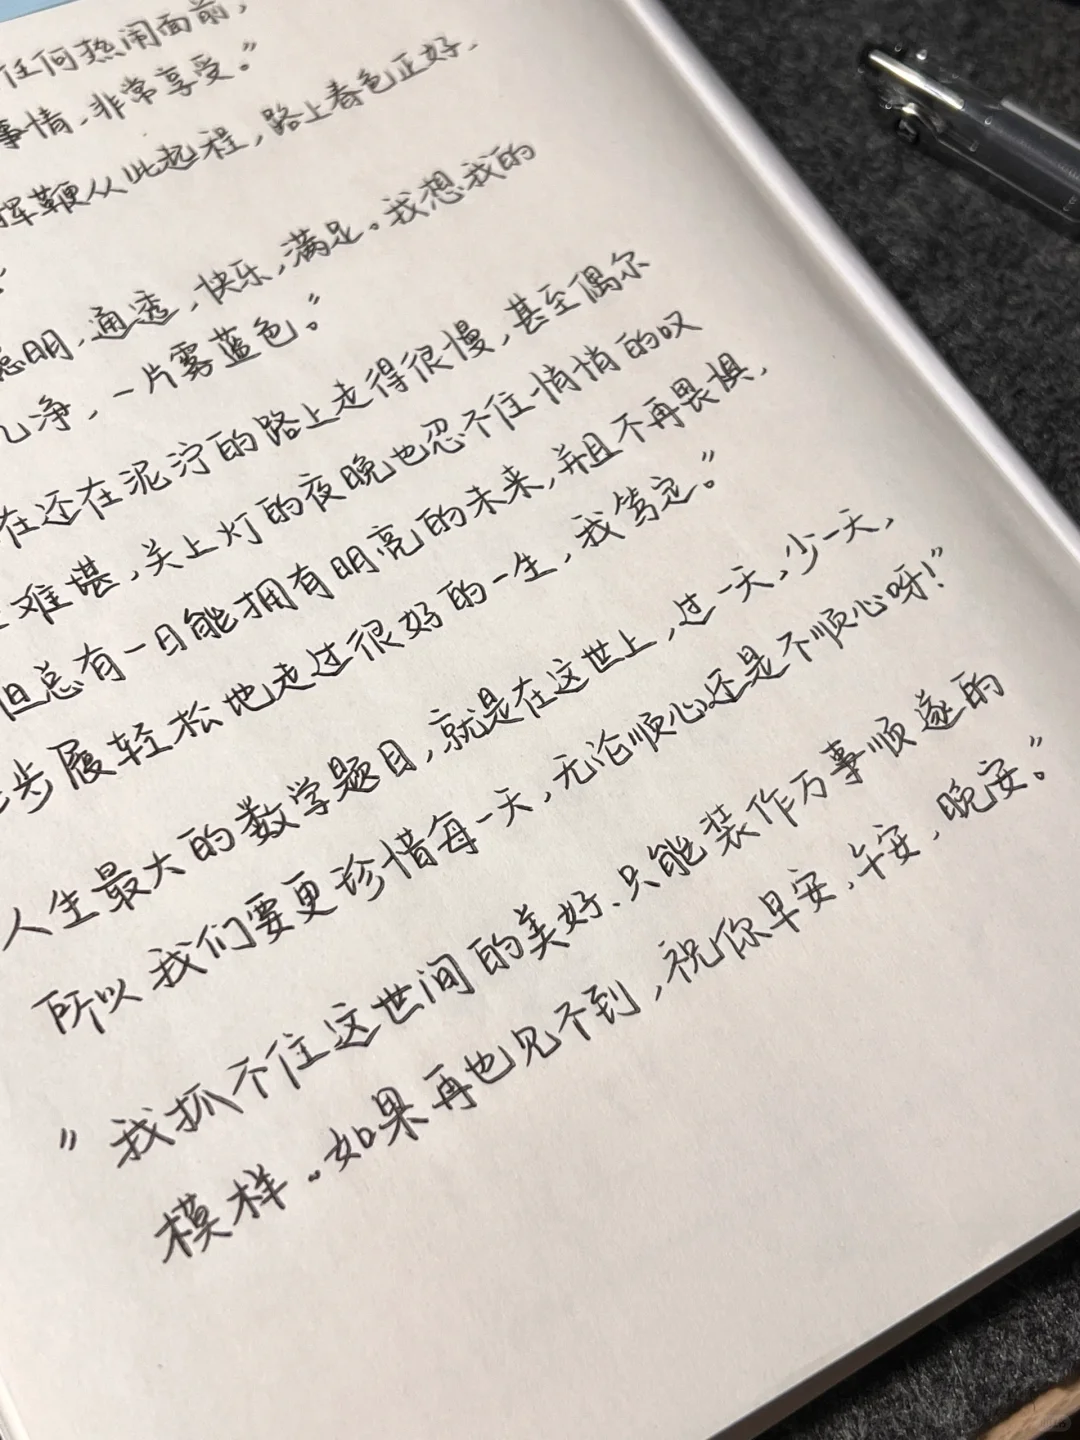 任何热闹面前，
事情，非常享受。"
挥鞭从此起程，路上春色正好，
聪明，通透，快乐，满足。我想我的
净，一片雾蓝色。"
在还在泥泞的路上走得很慢，甚至偶尔
难堪，关上灯的夜晚也忍不住悄悄的叹
但总有一日能拥有明亮的未来，并且不再畏惧，
步履轻松地走过很好的一生，我笃定。"
人生最大的数学题目，就是在这世上，过一天，少一天，
所以我们要更珍惜每一天，无论顺心还是不顺心呀！"
"我抓不住这世间的美好、只能装作万事顺遂的
模样。如果再也见不到，祝你早安、午安、晚安。"